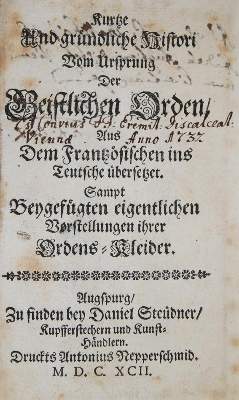 Kurtze
Und gründliche Histori
Vom Ursprung
Der
Geistlichen Orden/
Conventus FF. Eremit. Discalceat.
Aus
Vienna Anno 1732
Dem Frantzösischen ins
Teutsche übersetzet.
Sampt
Beygefügten eigentlichen
Vorstellungen ihrer
Ordens-Kleider.
Augspurg/
Zu finden bey Daniel Steüdner/
Kupfferstechern und Kunst-
Händlern.
Druckts Antonius Nepperschmid.
M. D. C. XCII.